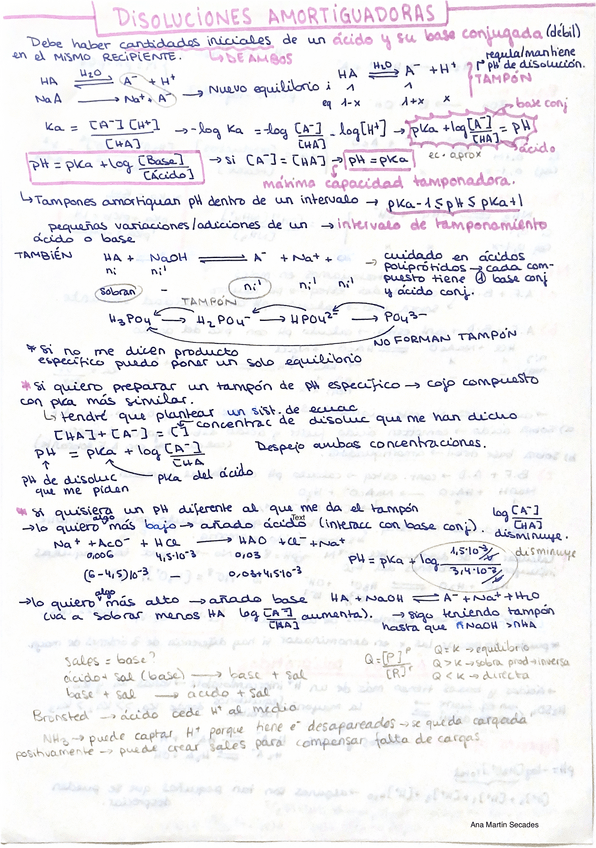 DISOLUCIONES AMORTIGUADORAS
Debe haber cantidades iniciales de un ácido y su base conjugada (débil)
en el MISMO RECIPIENTE. ↳ DE AMBOS
regula/mantiene
pH de disolución.
TAMPÓN
HA ⇌ H₂O A⁻ + H⁺
NaA → Na⁺ + A⁻ → Nuevo equilibrio
HA ⇌ H₂O A⁻ + H⁺
i 1 1
eq 1-x 1+x x
Ka = [A⁻][H⁺] / [HA] → -log Ka = -log [A⁻]/[HA] - log[H⁺] → pKa + log [A⁻]/[HA] = pH
base conj
ácido
ec. aprox
pH = pKa + log [Base]/[Ácido] → si [A⁻] = [HA] → pH = pKa
máxima capacidad tamponadora.
↳ Tampones amortiguan pH dentro de un intervalo → pKa-1 ≤ pH ≤ pKa+1
pequeñas variaciones/adiciones de un → intervalo de tamponamiento
ácido o base
TAMBIÉN HA + NaOH ⇌ A⁻ + Na⁺ +
ni ni' ni' ni' ni'
sobran -
→ cuidado en ácidos
polipróticos → cada com-
puesto tiene 1 base conj
y ácido conj.
TAMPÓN
H₃PO₄ → H₂PO₄⁻ → HPO₄²⁻ → PO₄³⁻
NO FORMAN TAMPÓN
* Si no me dicen producto
específico puedo poner un solo equilibrio
* Si quiero preparar un tampón de pH específico → cojo compuesto
con pKa más similar.
↳ tendré que plantear un sist. de ecuac
[HA] + [A⁻] = [ ] ← concentrac de disoluc que me han dicho
pH = pKa + log [A⁻]/[HA Despejo ambas concentraciones.
pH de disoluc
que me piden
pKa del ácido
* si quisiera un pH diferente al que me da el tampón
→ lo quiero algo más bajo → añado ácido (interacc con base conj).
Text
log [A⁻]/[HA]
disminuye.
Na⁺ + AcO⁻ + HCl → HAO + Cl⁻ + Na⁺
0,006 4,5·10⁻³ 0,03
(6-4,5)10⁻³ - 0,03+4,5·10⁻³
pH = pKa + log 1,5·10⁻³ / 3,4·10⁻²
disminuye
→ lo quiero algo más alto → añado base HA + NaOH ⇌ A⁻ + Na⁺ + H₂O
(va a sobrar menos HA log [A⁻]/[HA] aumenta). → sigo teniendo tampón
hasta que nNaOH > nHA
Sales = base?
ácido + sal (base) → base + sal
base + sal → ácido + sal
Q = [P]ᵖ/[R]ʳ
Q = K → equilibrio
Q > K → sobra prod → inversa
Q < K → directa
Bronsted → ácido cede H⁺ al medio
NH₃ → puede captar H⁺ porque tiene e⁻ desapareados → se queda cargada
positivamente → puede crear sales para compensar falta de cargas
Ana Martín Secades